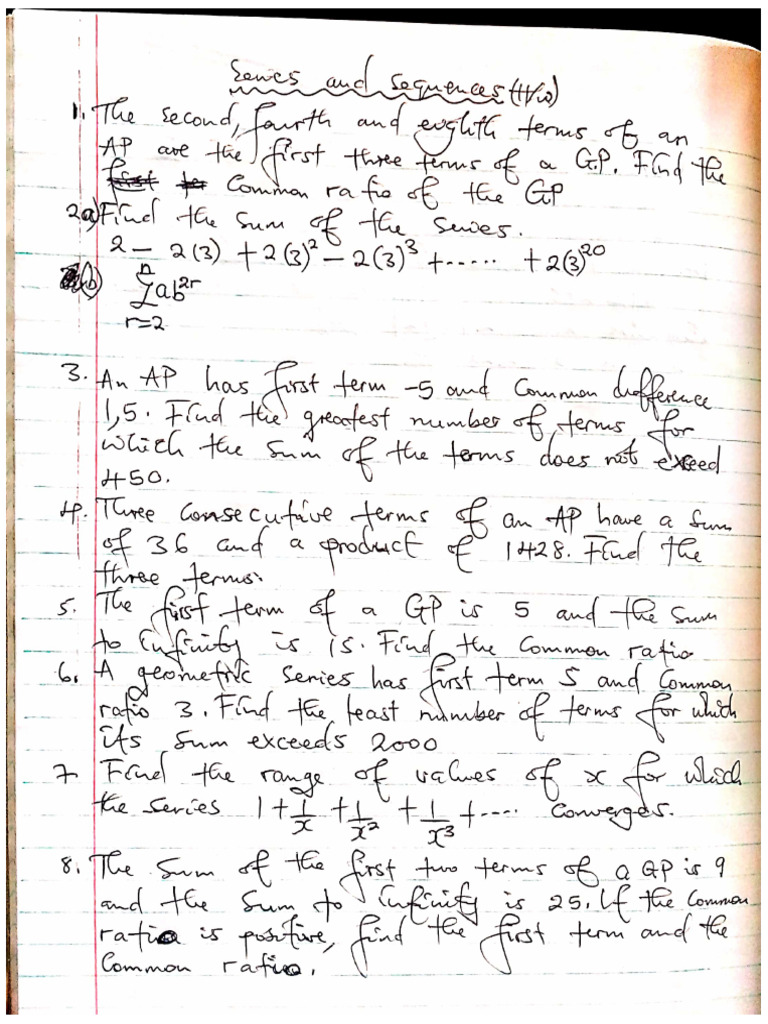 Series and Sequences (H/W)
1. The second, fourth and eighth terms of an
AP are the first three terms of a G.P. Find the
common ratio of the GP
2a) Find the sum of the series.
2 - 2(3) + 2(3)² - 2(3)³ + ...... + 2(3)²⁰
b) n
∑ ab²ʳ
r=2
3. An AP has first term -5 and common difference
1,5. Find the greatest number of terms for
which the sum of the terms does not exceed
450.
4. Three consecutive terms of an AP have a sum
of 36 and a product of 1428. Find the
three terms.
5. The first term of a GP is 5 and the sum
to infinity is 15. Find the common ratio
6. A geometric series has first term 5 and common
ratio 3. Find the least number of terms for which
its sum exceeds 2000
7 Find the range of values of x for which
the series 1 + 1/x + 1/x² + 1/x³ + .... converges.
8. The sum of the first two terms of a GP is 9
and the sum to infinity is 25. If the common
ratio is positive, find the first term and the
common ratio.